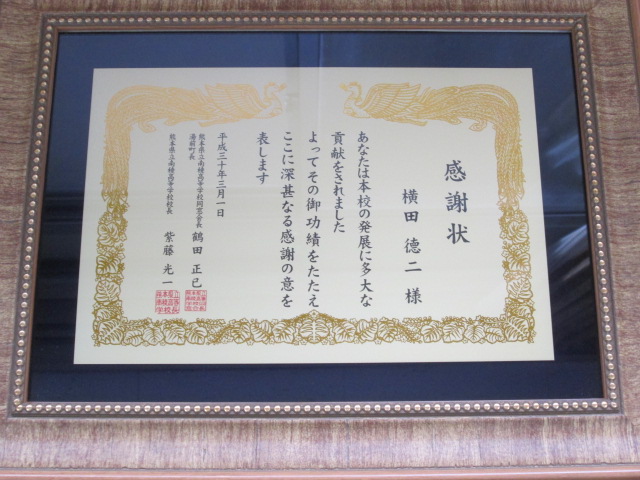 感謝状
横田 德二 様
あなたは本校の発展に多大な
貢献をされました
よってその御功績をたたえ
ここに深甚なる感謝の意を
表します
平成三十年三月一日
熊本県立南稜高等学校同窓会長
湯前町長
鶴田 正已
熊本県立南稜高等学校校長 紫藤 光一